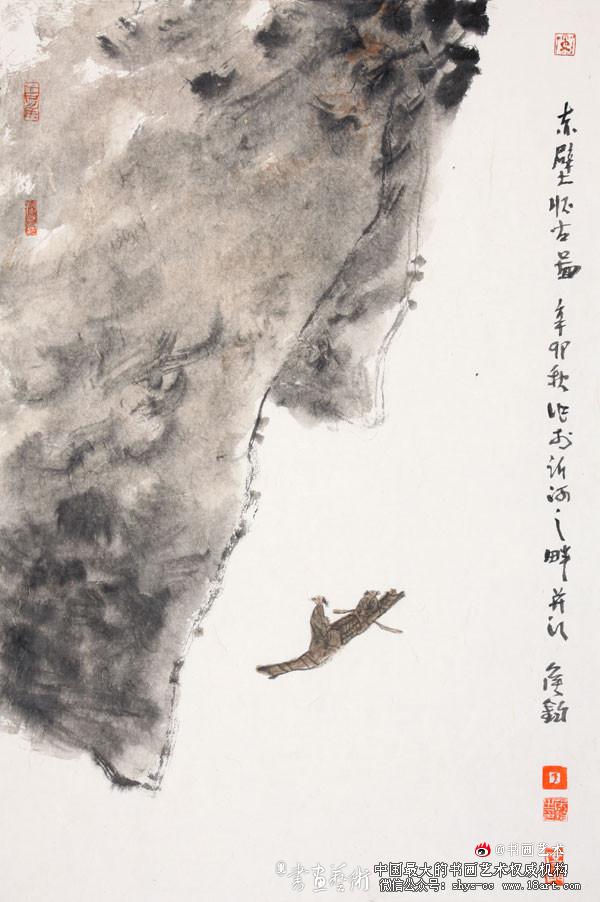 赤壁怀古图 辛卯秋作于沂河之畔并记 侯钧
@书画艺术
書画藝術
中国最大的书画艺术权威机构
微信公众号：shys-cc www.18art.com